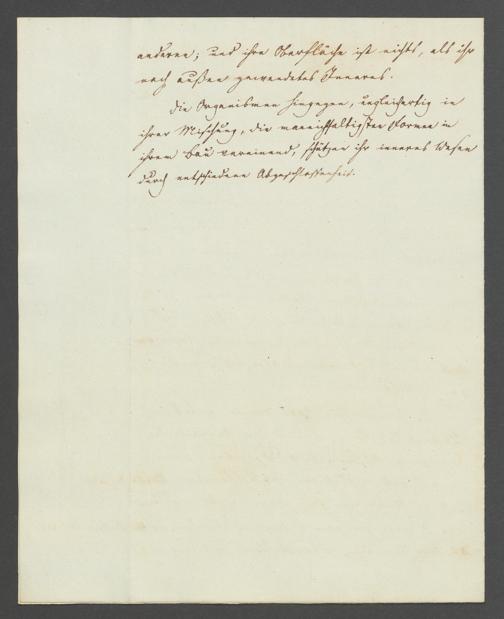 anderen; und ihre Oberfläche ist nichts, als ihr
nach außen gewendetes Inneres.
Die Organismen hingegen, ungleichartig in
ihrer Mischung, die mannichfaltigsten Formen in
ihrem Bau vereinend, schützen ihr inneres Wesen
durch entschiedene Abgeschlossenheit.